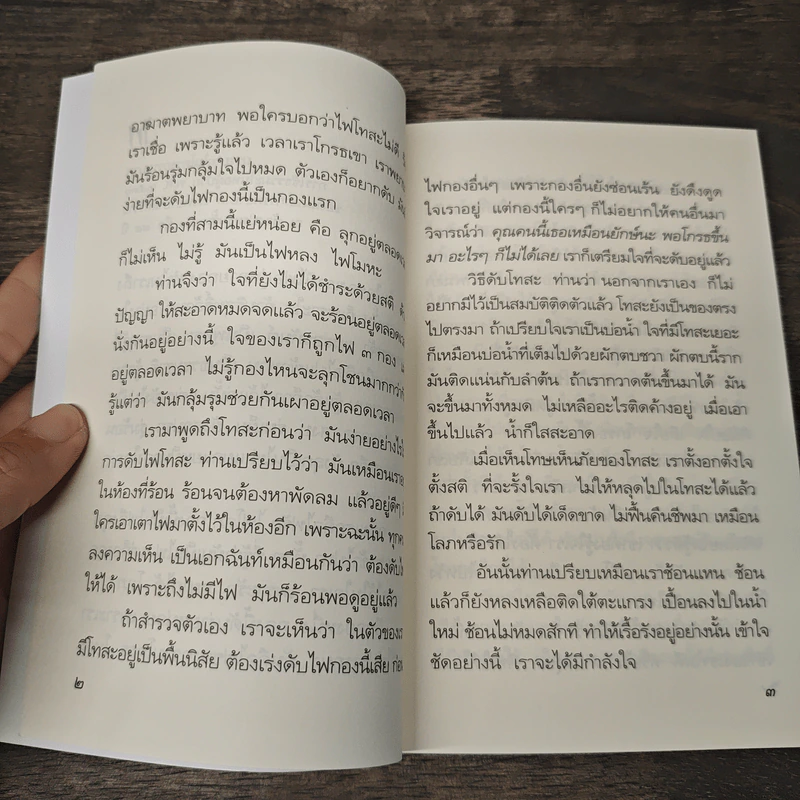 อาฆาตพยาบาท พอใครบอกว่าไฟโทสะไม่ดี
เราเชื่อ เพราะรู้แล้ว เวลาเราโกรธเขา
มันร้อนรุ่มกลุ้มใจไปหมด ตัวเองก็อยากดับ
ง่ายที่จะดับไฟกองนี้เป็นกองแรก
กองที่สามนี้แย่หน่อย คือ ลุกอยู่ตลอด
ก็ไม่เห็น ไม่รู้ มันเป็นไฟหลง ไฟโมหะ
ท่านจึงว่า ใจที่ยังไม่ได้ชำระด้วยสติ
ปัญญา ให้สะอาดหมดจดแล้ว จะร้อนอยู่ตลอด
นั่งกันอยู่อย่างนี้ ใจของเราก็ถูกไฟ ๓ กอง
อยู่ตลอดเวลา ไม่รู้กองไหนจะลุกโชนมากกว่า
รู้แต่ว่า มันกลุ้มรุมช่วยกันเผาอยู่ตลอดเวลา
เรามาพูดถึงโทสะก่อนว่า มันง่ายอย่างไร
การดับไฟโทสะ ท่านเปรียบไว้ว่า มันเหมือนเรา
ในห้องที่ร้อน ร้อนจนต้องหาพัดลม แล้วอยู่ดีๆ
ใครเอาเตาไฟมาตั้งไว้ในห้องอีก เพราะฉะนั้น
ลงความเห็น เป็นเอกฉันท์เหมือนกันว่า ต้องดับ
ให้ได้ เพราะถึงไม่มีไฟ มันก็ร้อนพอดูอยู่แล้ว
ถ้าสำรวจตัวเอง เราจะเห็นว่า ในตัวของ
มีโทสะอยู่เป็นพื้นนิสัย ต้องเร่งดับไฟกองนี้เสีย
๒
ไฟกองอื่นๆ เพราะกองอื่นยังซ่อนเร้น ยังดึงดูด
ใจเราอยู่ แต่กองนี้ใครๆ ก็ไม่อยากให้คนอื่นมา
วิจารณ์ว่า คุณคนนี้เธอเหมือนยักษ์นะ พอโกรธขึ้น
มา อะไรๆ ก็ไม่ได้เลย เราก็เตรียมใจที่จะดับอยู่แล้ว
วิธีดับโทสะ ท่านว่า นอกจากเราเอง ก็ไม่
อยากมีไว้เป็นสมบัติติดตัวแล้ว โทสะยังเป็นของตรง
ไปตรงมา ถ้าเปรียบใจเราเป็นบ่อน้ำ ใจที่มีโทสะเยอะ
ก็เหมือนบ่อน้ำที่เต็มไปด้วยผักตบชวา ผักตบนี้ราก
มันติดแน่นกับลำต้น ถ้าเรากวาดต้นขึ้นมาได้ มัน
จะขึ้นมาทั้งหมด ไม่เหลืออะไรติดค้างอยู่ เมื่อเอา
ขึ้นไปแล้ว น้ำก็ใสสะอาด
เมื่อเห็นโทษเห็นภัยของโทสะ เราตั้งอกตั้งใจ
ตั้งสติ ที่จะรั้งใจเรา ไม่ให้หลุดไปในโทสะได้แล้ว
ถ้าดับได้ มันดับได้เด็ดขาด ไม่ฟื้นคืนชีพมา เหมือน
โลภหรือรัก
อันนั้นท่านเปรียบเหมือนเราช้อนแหน ช้อน
แล้วก็ยังหลงเหลือติดใต้ตะแกรง เปื้อนลงไปในน้ำ
ใหม่ ช้อนไม่หมดสักที ทำให้เรื้อรังอยู่อย่างนั้น เข้าใจ
ชัดอย่างนี้ เราจะได้มีกำลังใจ
๓